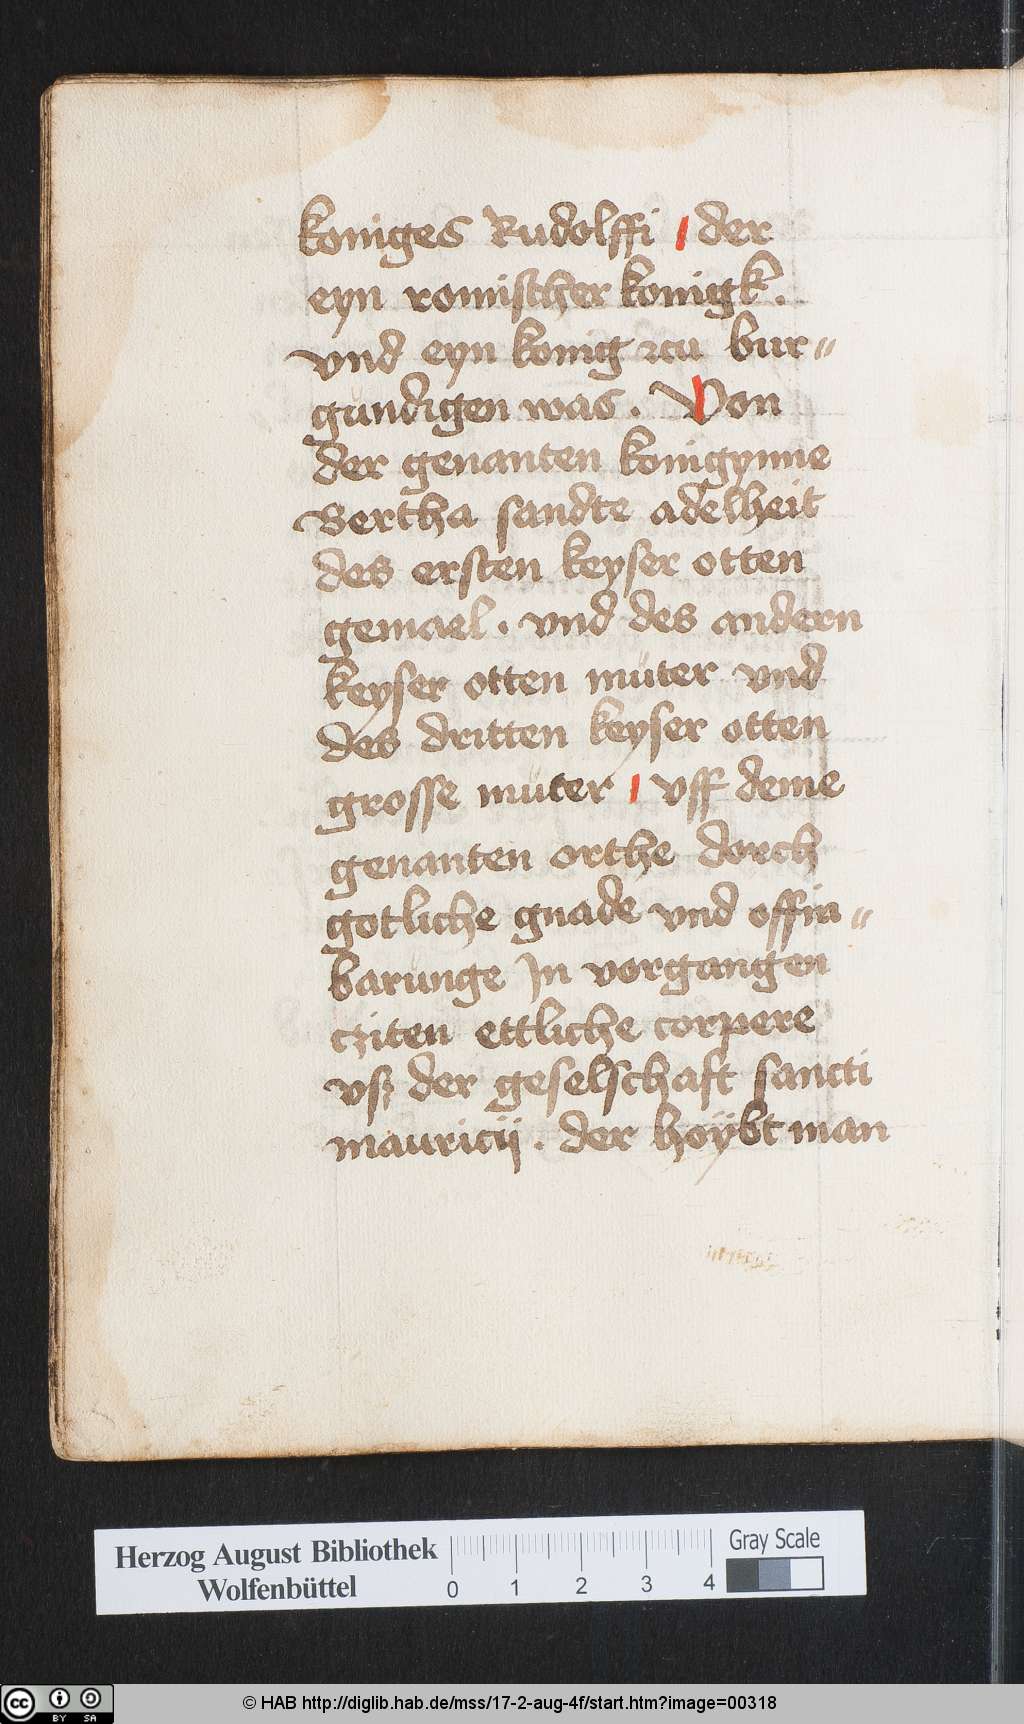 koniges Rudolffi | der
eyn romischer konigk.
vnd eyn konig zcu bur=
gundigen was. Von
der genanten konigynne
Bertha sandte adelheit
des ersten keyser otten
gemael. vnd des andern
keyser otten muter vnd
des dritten keyser otten
grosse muter | vff deme
genanten orthe dorch
gotliche gnade vnd offin=
barunge Jn vorgangen
cziten ettliche corpere
vsz der geselschaft sancti
mauricij. der hoÿbt man
Herzog August Bibliothek
Wolfenbüttel
0 1 2 3 4
Gray Scale
cc BY SA
© HAB http://diglib.hab.de/mss/17-2-aug-4f/start.htm?image=00318